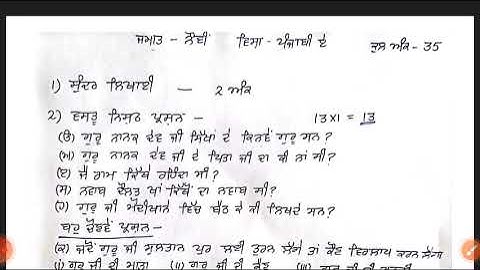 ਜਮਾਤ - ਨੌਵੀਂ ਵਿਸ਼ਾ - ਪੰਜਾਬੀ ਏ ਕੁਲ ਅੰਕ - 35
1) ਸੁੰਦਰ ਲਿਖਾਈ — 2 ਅੰਕ
2) ਵਸਤੂ ਨਿਸ਼ਠ ਪ੍ਰਸ਼ਨ - 13x1 = 13
(ੳ) ਗੁਰੂ ਨਾਨਕ ਦੇਵ ਜੀ ਸਿੱਖਾਂ ਦੇ ਕਿਨਵੇਂ ਗੁਰੂ ਸਨ?
(ਅ) ਗੁਰੂ ਨਾਨਕ ਦੇਵ ਜੀ ਦੇ ਪਿਤਾ ਜੀ ਦਾ ਕੀ ਨਾਂ ਸੀ?
(ੲ) ਜੈ ਰਾਮ ਕਿੱਥੇ ਰਹਿੰਦਾ ਸੀ?
(ਸ) ਨਵਾਬ ਦੌਲਤ ਖਾਂ ਕਿੱਥੋਂ ਦਾ ਨਵਾਬ ਸੀ?
(ਹ) ਗੁਰੂ ਜੀ ਮੋਦੀਖਾਨੇ ਵਿੱਚ ਬੈਠ ਕੇ ਕੀ ਲਿਖਦੇ ਸਨ?
ਬਹੁ ਚੋਣਵੇਂ ਪ੍ਰਸ਼ਨ -
(ਕ) ਜਦੋਂ ਗੁਰੂ ਜੀ ਸੁਲਤਾਨ ਪੁਰ ਲਈ ਤੁਰਨ ਲੱਗੇ ਤਾਂ ਕੌਣ ਵਿਰਲਾਪ ਕਰਨ ਲੱਗਾ
(i) ਗੁਰੂ ਜੀ ਦੀ ਮਾਤਾ (ii) ਗੁਰੂ ਜੀ ਦੀ ਭੈਣ (iii) ਗੁਰੂ ਜੀ ਦੀ